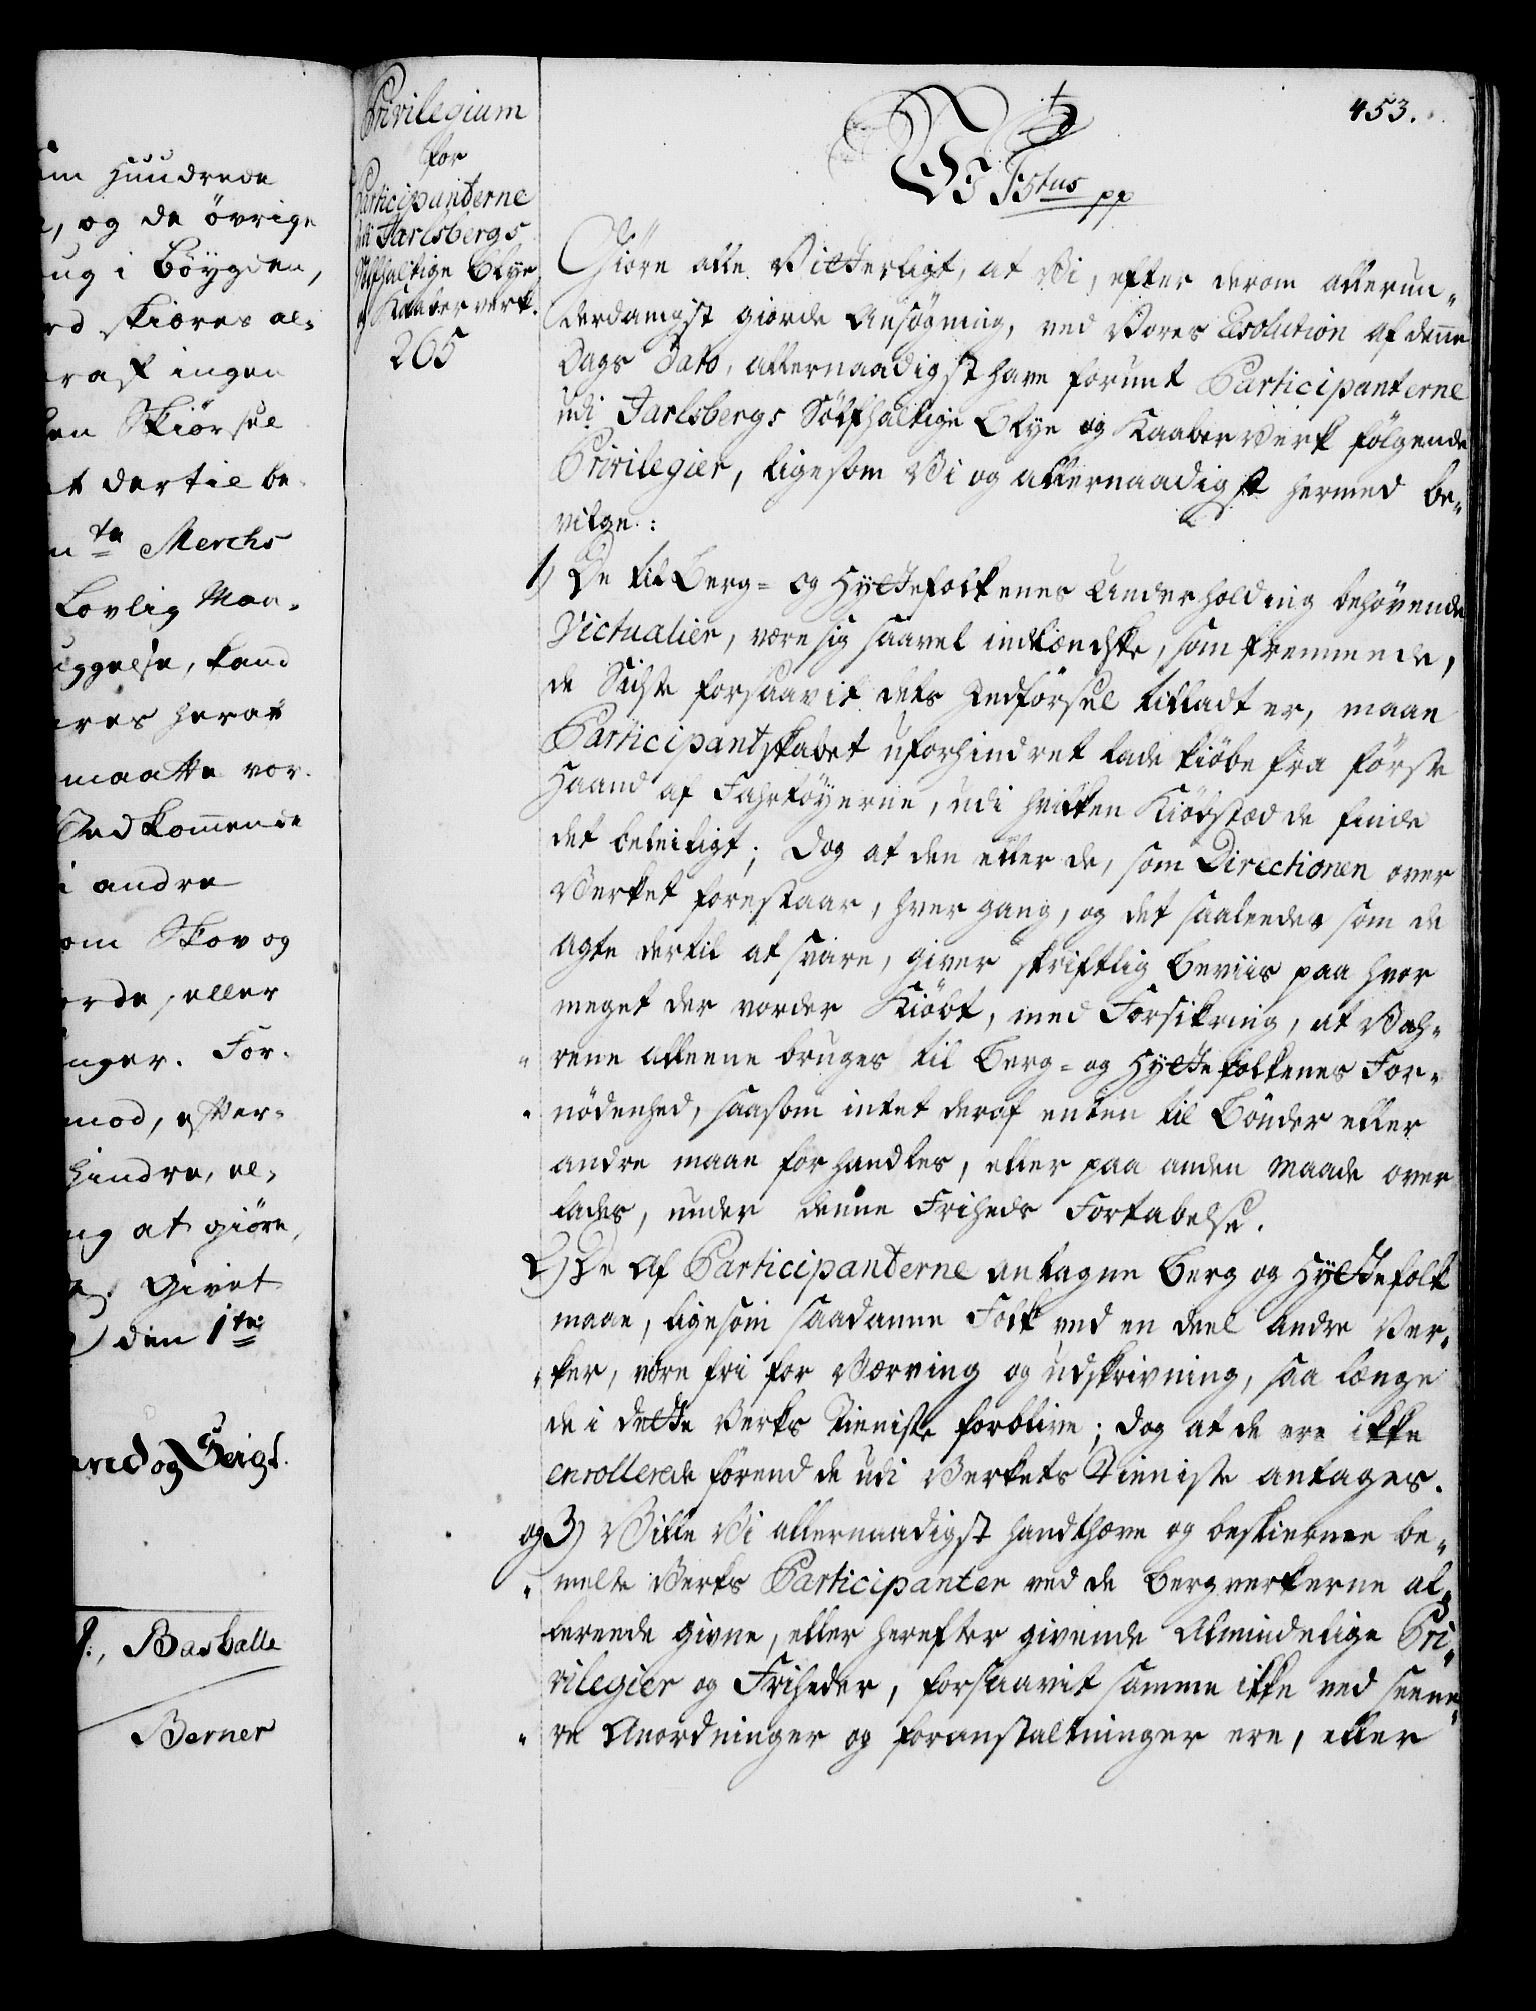 um Hundrede
, og de øvrige
ug i Bøygden,
rd skiæres al-
rast ingen
en Skiørsel
t dertil be-
n te Merchs
Lovlig Maa-
yggelse, kand
eres herat
maatte vor-
Vedkommende
i andre
om Skov og
orde, eller
nger. For-
mod, efter-
hindre, el-
ng at giöre,
Givet
den 1te
og Seigl.
Basballe
Berner
453.
Privilegium
for
Participanterne
udi Jarlsbergs
Sölfhaltige Blye
og Kaaberverk.
265
Giöre alle Vitterligt, at Vi, efter derom allerun-
derdanigst giorde Ansögning, ved Vores Resolution af denne
Dags Dato, allernaadigst have forunt Participanterne
udi Jarlsbergs Sölfhaltige Blye og Kaaber Verk fölgende
Privilegier, ligesom Vi og allernaadigst hermed be-
vilge:
1) De til Berg- og Hyttefolkenes Underholding behövende
Victualier, være sig saavel indlændske, som fremmede,
de Sidste forsaavit dets Indförsel tilladt er, maae
Participantskabet uforhindret lade kiöbe fra förste
Haand af Fahrtöyerne, udi hvilken Kiöbstæd de finde
det beleiligt; Dog at den eller de, som Directionen over
Verket forestaar, hver gang, og det saaleedes som de
agte dertil at svare, giver skriftlig Beviis paa hvor
meget der vorder Kiöbt, med Forsikring, at Vah-
rene alleene bruges til Berg- og Hyttefolkenes For-
nödenhed, saasom intet deraf enten til Bönder eller
andre maae forhandles, eller paa anden Maade over
lades, under denne Friheds Fortabelse.
2) De af Participanterne antagne Berg og Hyttefolk
maae, ligesom saadanne Folk ved en deel andre Ver-
ker, være fri for Værving og Udskrivning, saa længe
de i dette Verks Tieniste forblive; dog at de ere ikke
enrollerede förend de udi Verkets Tieniste antages.
og 3) Ville Vi allernaadigst handthæve og beskierme be-
melte Verks Participanter ved de Bergverkerne al-
lereede givne, eller herefter givende Almindelige Pri-
vilegier og Friheder, forsaavit samme ikke ved seene-
re Anordninger og foranstaltninger ere, eller